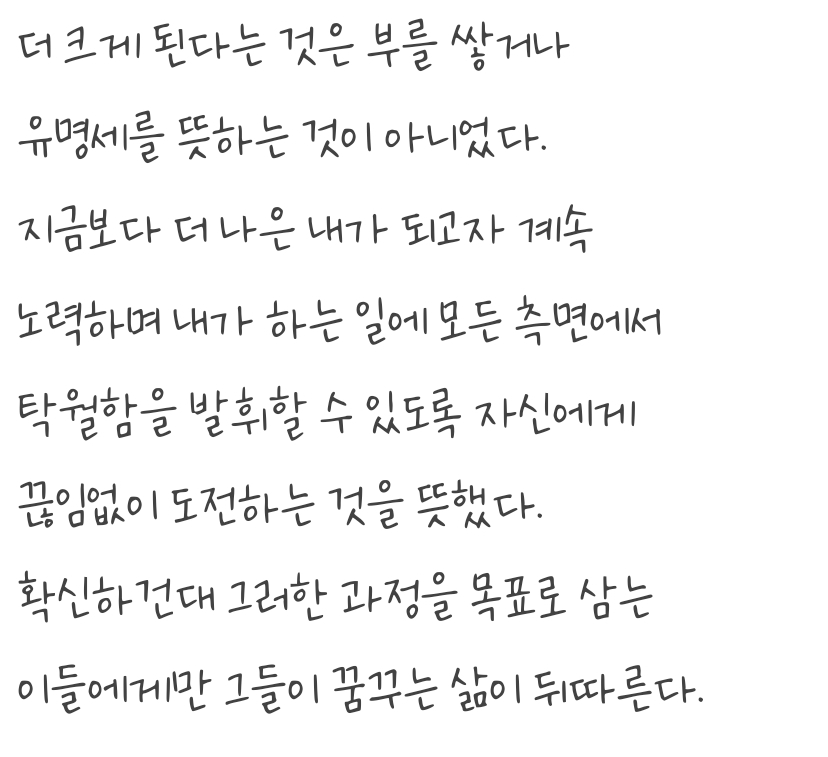 더 크게 된다는 것은 부를 쌓거나
유명세를 뜻하는 것이 아니었다.
지금보다 더 나은 내가 되고자 계속
노력하며 내가 하는 일에 모든 측면에서
탁월함을 발휘할 수 있도록 자신에게
끊임없이 도전하는 것을 뜻했다.
확신하건대 그러한 과정을 목표로 삼는
이들에게만 그들이 꿈꾸는 삶이 뒤따른다.